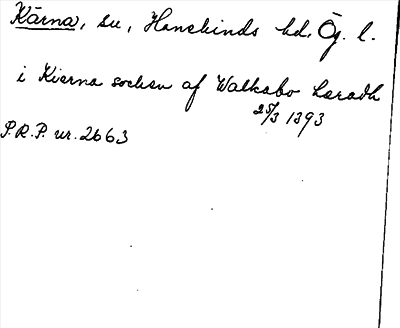 Kärna, sn, Hanekinds hd, Ög. l.
i Kierna sochen af Walkabo hæradh
25/3 1393
P.R.P. nr. 2663